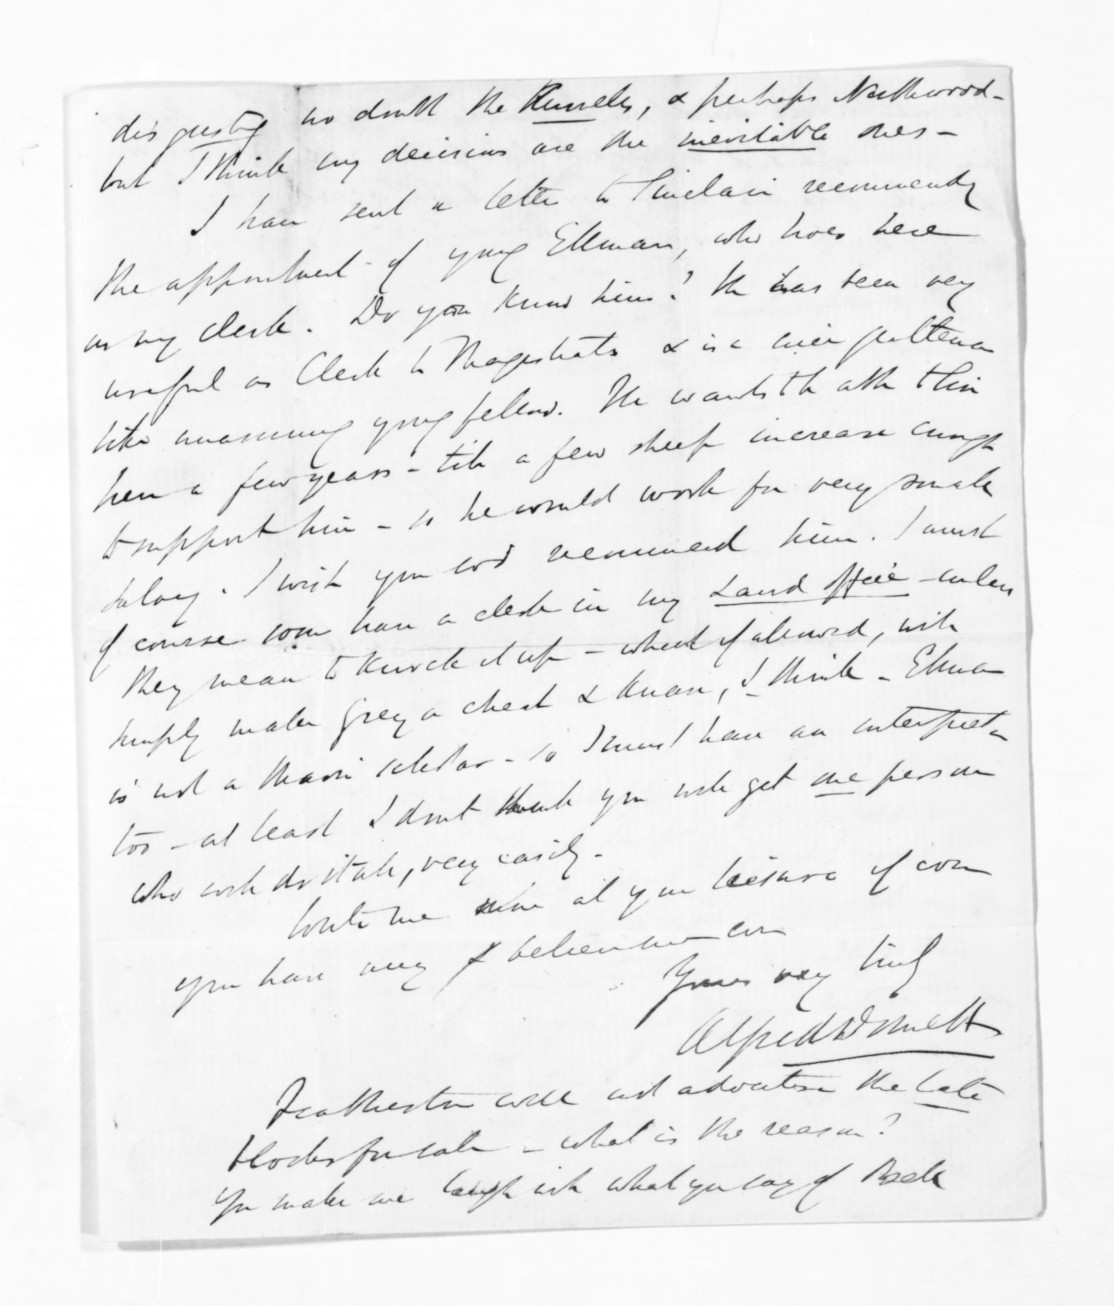 disgusting no doubt the Russells, & perhaps Northwood -
but I think my decisions are the inevitable ones -
I have sent a letter to Sinclair recommendg
the appointment of young Ellman, who lives here
as my clerk. Do you know him? He has been very
useful as Clerk to Magistrates & is a nice
like unassuming young fellow. He wants
here a few years - till a few sheep increase enough
to support him - so he would work for very small
salary. I wish you wd recommend him. I must
of course soon have a clerk in my Land Office - unless
they mean to knock it up - which if allowed, will
simply make Grey a cheat & knave, I think - Elman
is not a Maori scholar - so I must have an interpreter
too - at least I don't think you will get one person
who will do it all, very easily.
Write me at your leisure if ever
you have any & believe me ever
Yours very truly
Alfred Domett
Featherston will not advertise the late
blocks for sale - what is the reason?
You make me laugh with what you say of